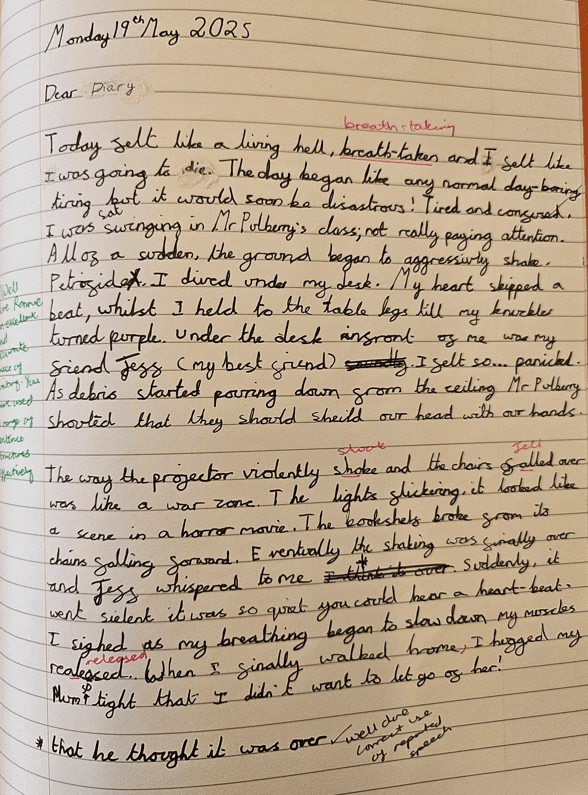 Monday 19th May 2025
Dear Diary
breath-taking
Today felt like a living hell, breath-taken and I felt like
I was going to die. The day began like any normal day-boring
tiring but it would soon be disastrous! Tired and confused.
sat
I was swinging in Mr Pulberry's class; not really paying attention.
All of a sudden, the ground began to aggressivly shake.
Petrified. I dived under my desk. My heart skipped a
beat, whilst I held to the table legs till my knuckles
turned purple. Under the desk infront of me was my
friend Jess (my best friend) . I felt so... panicked.
As debris started pouring down from the ceiling Mr Pulberry
shouted that they should sheild our head with our hands.
shook fell
The way the projector violently shoke and the chairs falled over
was like a war zone. The lights flickering, it looked like
a scene in a horror movie. The bookshelfs broke from its
chains falling forward. Eventually the shaking was finally over
and Jess whispered to me * I think it over. Suddenly, it
went sielent it was so quiet you could hear a heart-beat.
I sighed as my breathing began to slow down my muscles
released
realeased. When I finally walked home, I hugged my
Mum so tight that I didn't want to let go of her!
* that he thought it was over ✓ well done
correct use
of reported
speech
Well
excellent
piece of
You
used
range of
sentence
structures
effectively